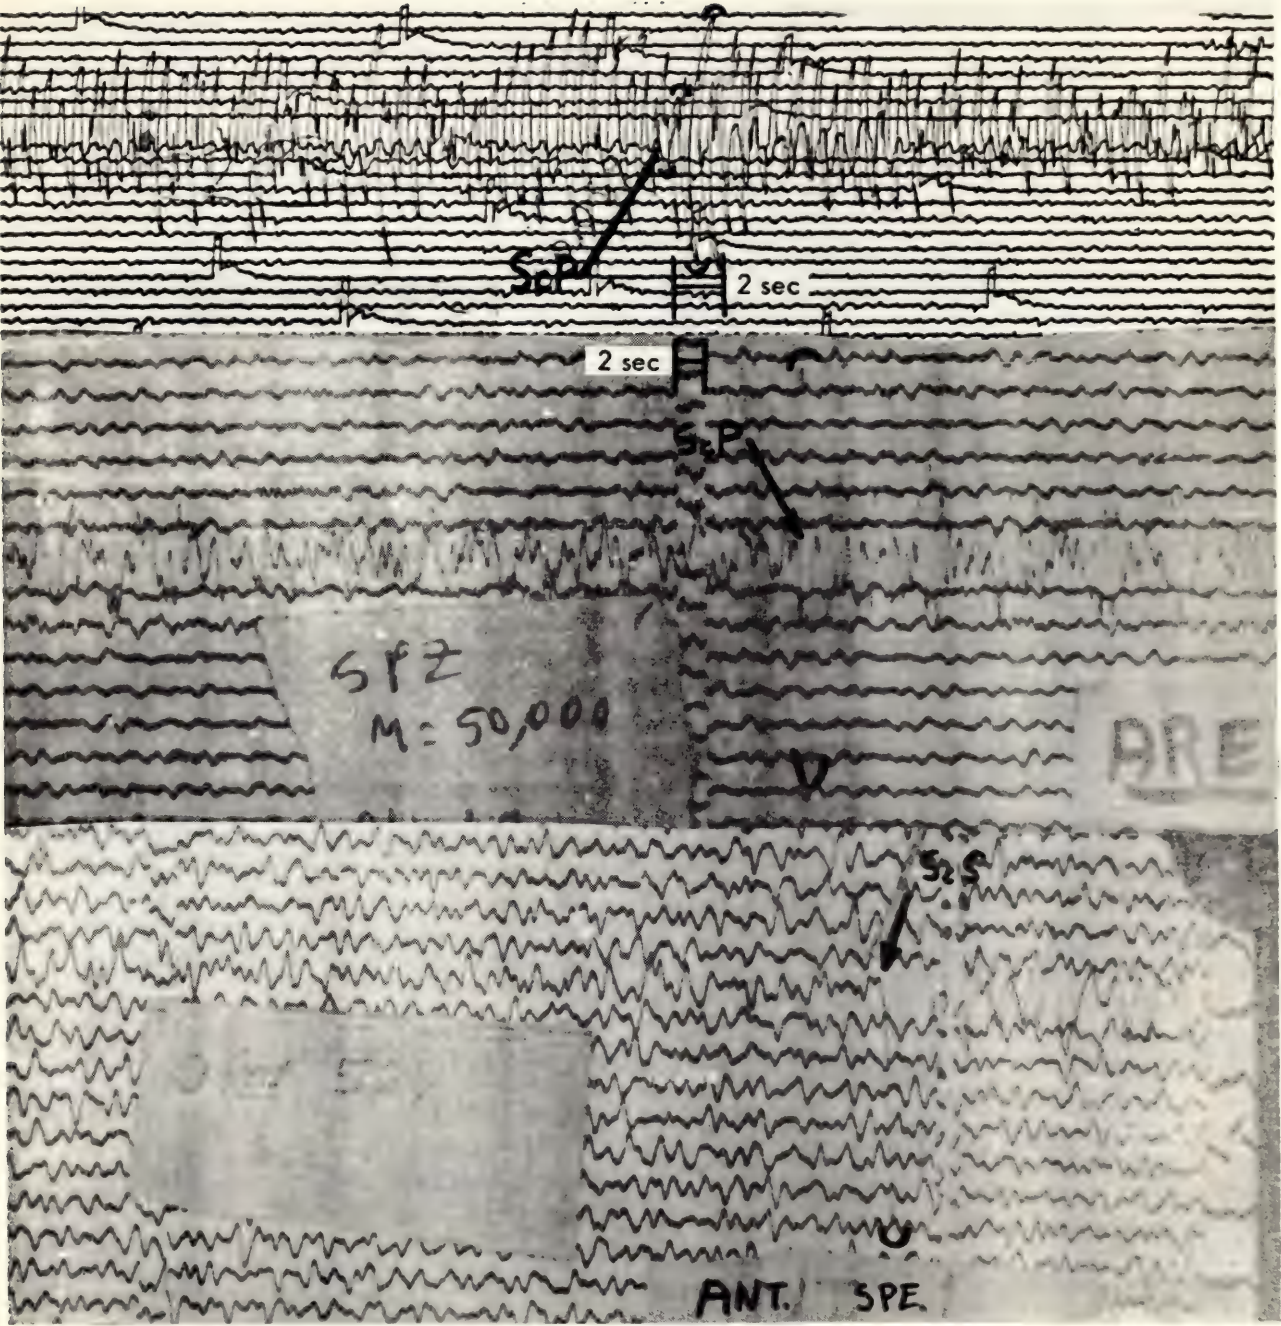 ScP
2 sec
2 sec
ScP
SPZ
M = 50,000
ARE
ScS
ANT. SPE.